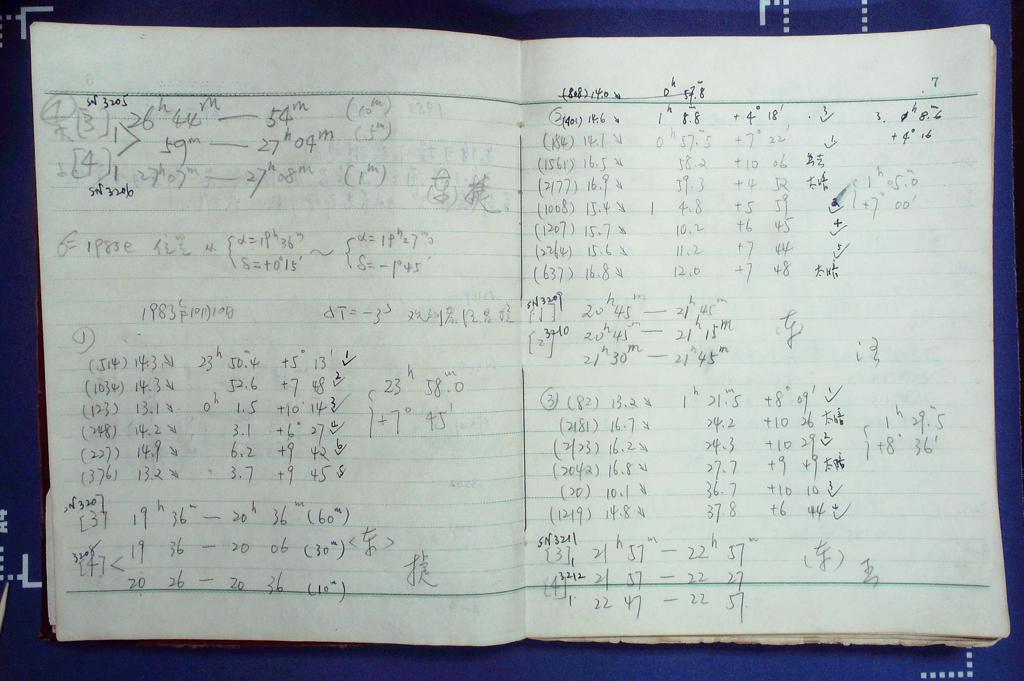 SN 3205
[3] 26ʰ 44ᵐ — 54ᵐ (10ᵐ)
59ᵐ — 27ʰ 04ᵐ (5ᵐ)
[4] 27ʰ 07ᵐ — 27ʰ 08ᵐ (1ᵐ)
SN 3206
1983e 位置 { α=19ʰ36ᵐ δ=+0°15′ ~ { α=19ʰ27ᵐ.0 δ=-1°45′
1983年10月10日 ΔT=-3ˢ
①
(514) 14.3↘ 23ʰ 50ᵐ.4 +5° 13′ 1
(1034) 14.3↘ 52.6 +7 48 2
(123) 13.1↘ 0ʰ 1.5 +10 14 3
(248) 14.2↘ 3.1 +6 27 4
(227) 14.9↘ 6.2 +9 42 6
(376) 13.2↘ 3.7 +9 45 5
{ 23ʰ 58ᵐ.0
+7° 45′
SN 3207
[3] 19ʰ 36ᵐ — 20ʰ 36ᵐ (60ᵐ)
3208
[4] < 19 36 — 20 06 (30ᵐ) <东>
20 26 — 20 36 (10ᵐ)
7
(808) 14.0↘ 0ʰ 57ᵐ.8
②(401) 14.6↘ 1ʰ 5ᵐ.8 +4° 18′ ✓
(184) 14.1↘ 0ʰ 57ᵐ.5 +7° 22′
(1561) 16.5↘ 58.2 +10 06
(2177) 16.9↘ 59.3 +4 52 太暗
(1008) 15.4↘ 1 4.8 +5 59
(1207) 15.7↘ 10.2 +6 45 4
(2264) 15.6↘ 11.2 +7 44 5
(637) 16.8↘ 12.0 +7 48 太暗
+4° 16
{ 1ʰ 05ᵐ.0
+7° 00′
SN 3209
[1] 20ʰ45ᵐ — 21ʰ45ᵐ
3210
[2] 20ʰ45ᵐ — 21ʰ15ᵐ 东
21ʰ30ᵐ — 21ʰ45ᵐ
③ (82) 13.2↘ 1ʰ 21ᵐ.5 +8° 09′ 1
(2181) 16.7↘ 24.2 +10 26 太暗
(2123) 16.2↘ 24.3 +10 29 2
(2042) 16.8↘ 27.7 +9 49 太暗
(20) 10.1↘ 36.7 +10 10 3
(1219) 14.8↘ 37.8 +6 44 4
{ 1ʰ 29ᵐ.5
+8° 36′
SN 3211
[3] 21ʰ 57ᵐ — 22ʰ 57ᵐ (东)
3212
[4] 21 57 — 22 27
22 47 — 22 57